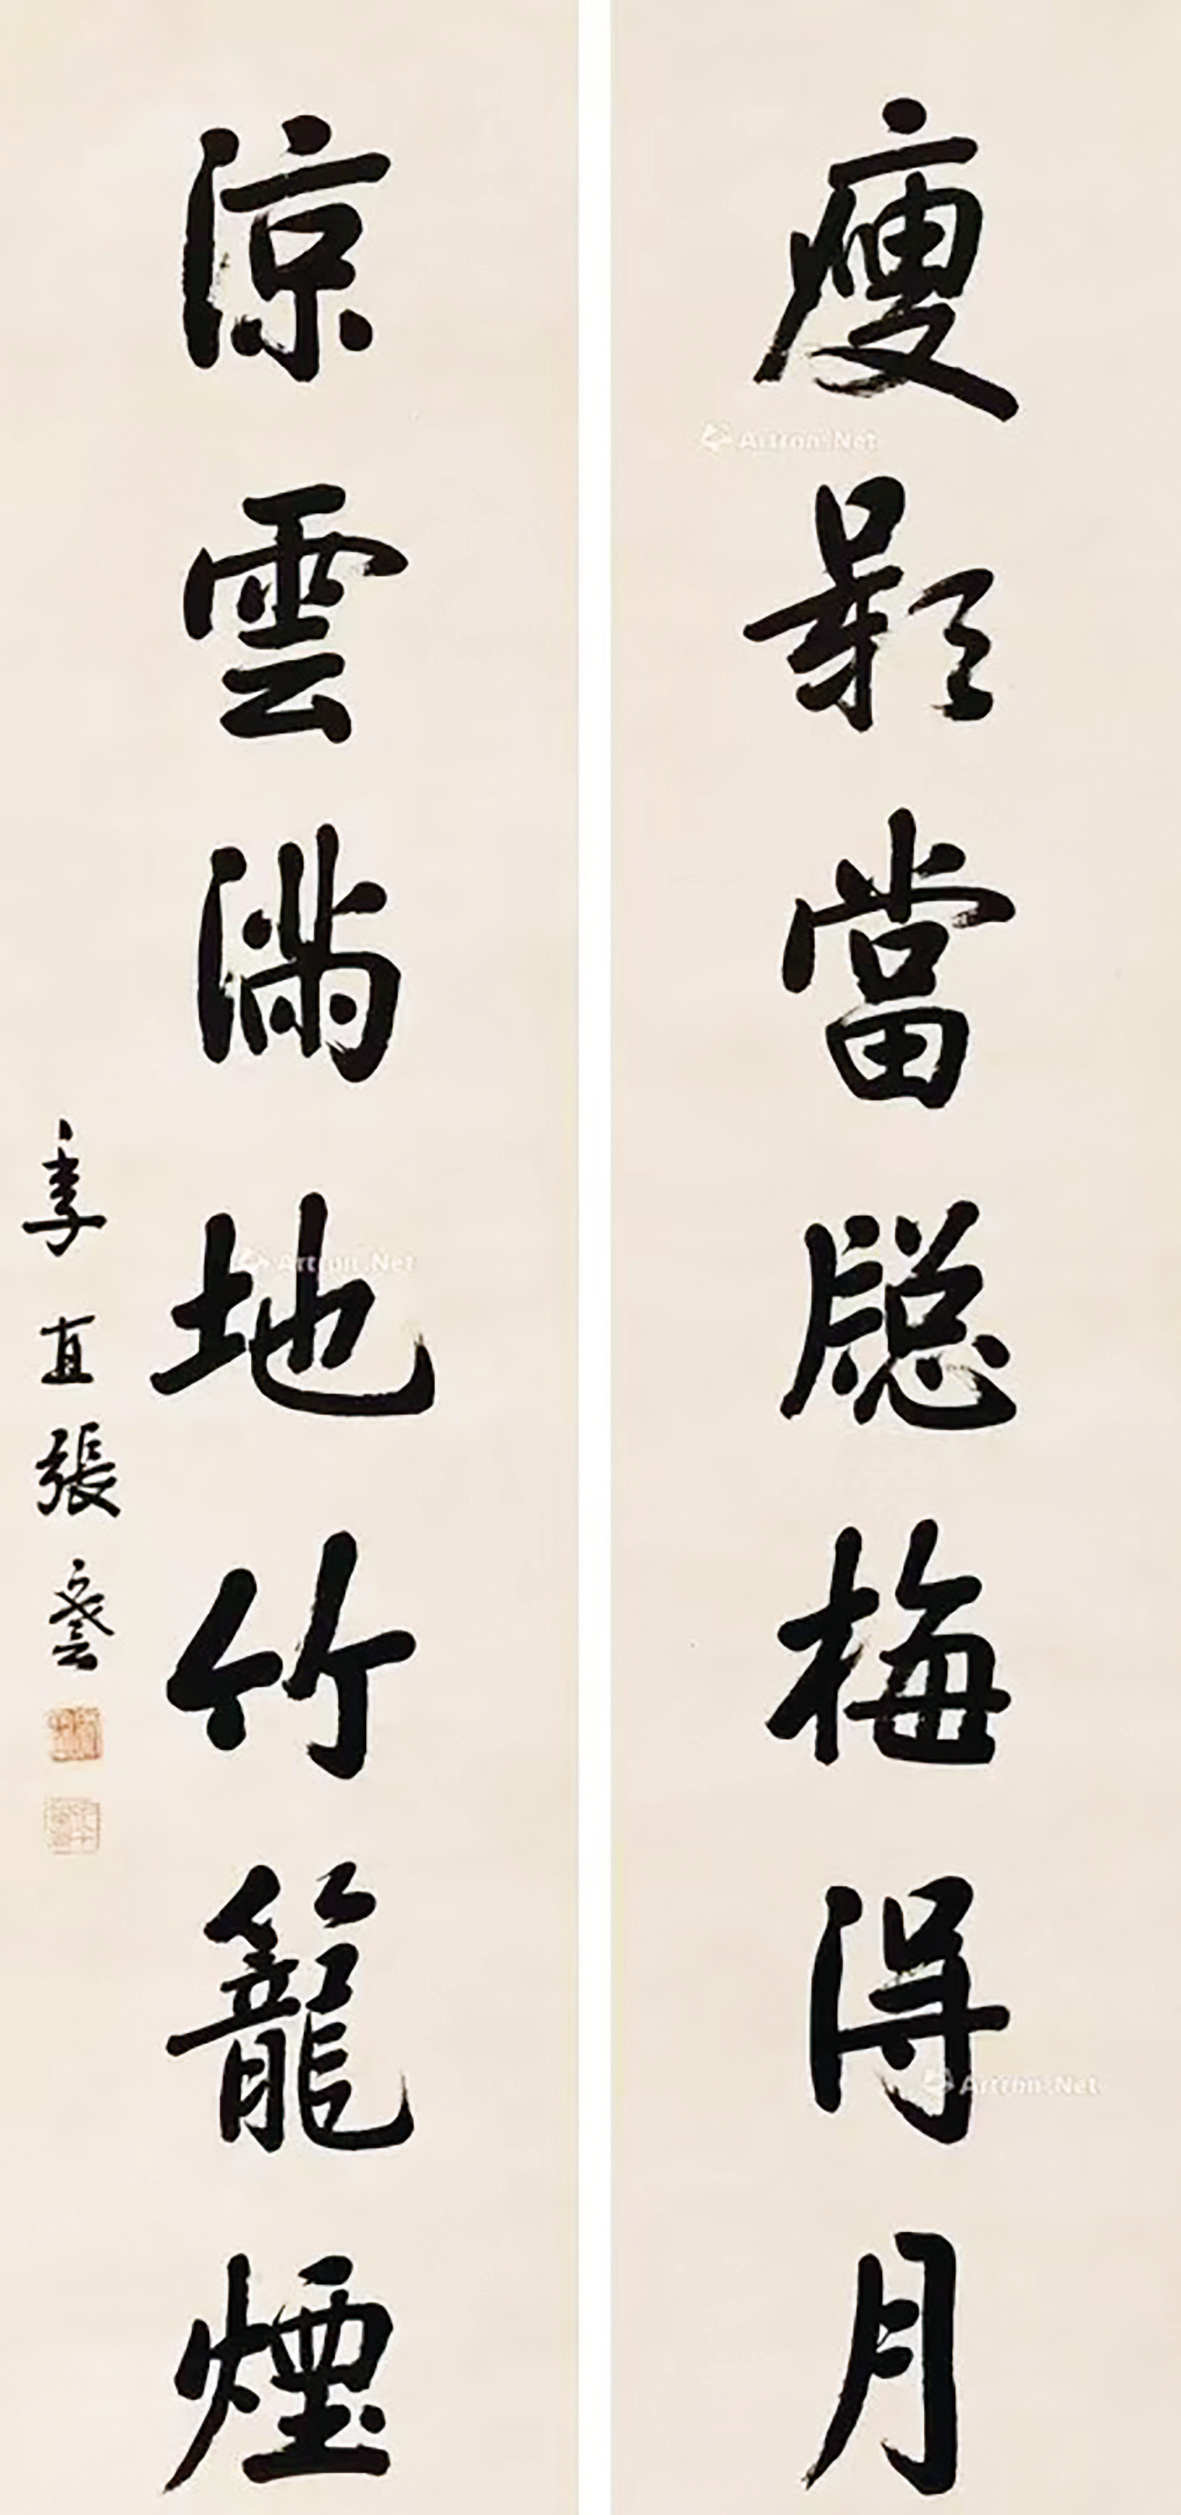 瘦影當牕梅得月
涼雲滿地竹籠煙
季直張謇
Artron.Net
Artron.Net
Artron.Net